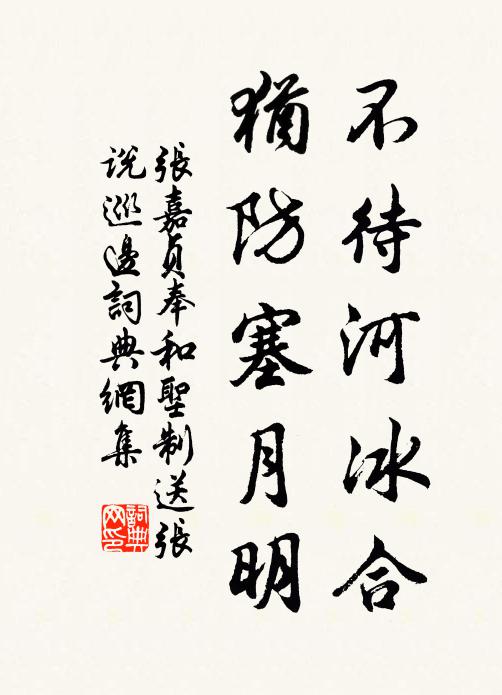 不待河冰合
猶防塞月明
張嘉貞奉和聖制送張
說巡邊詞典網集
詞典
网印